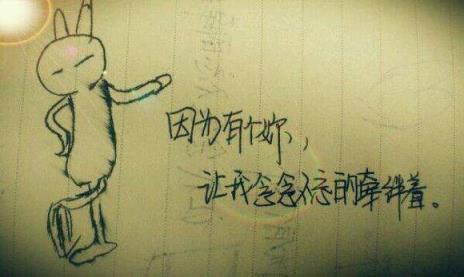 因为有个妳，
让我念念不忘的牵绊着。